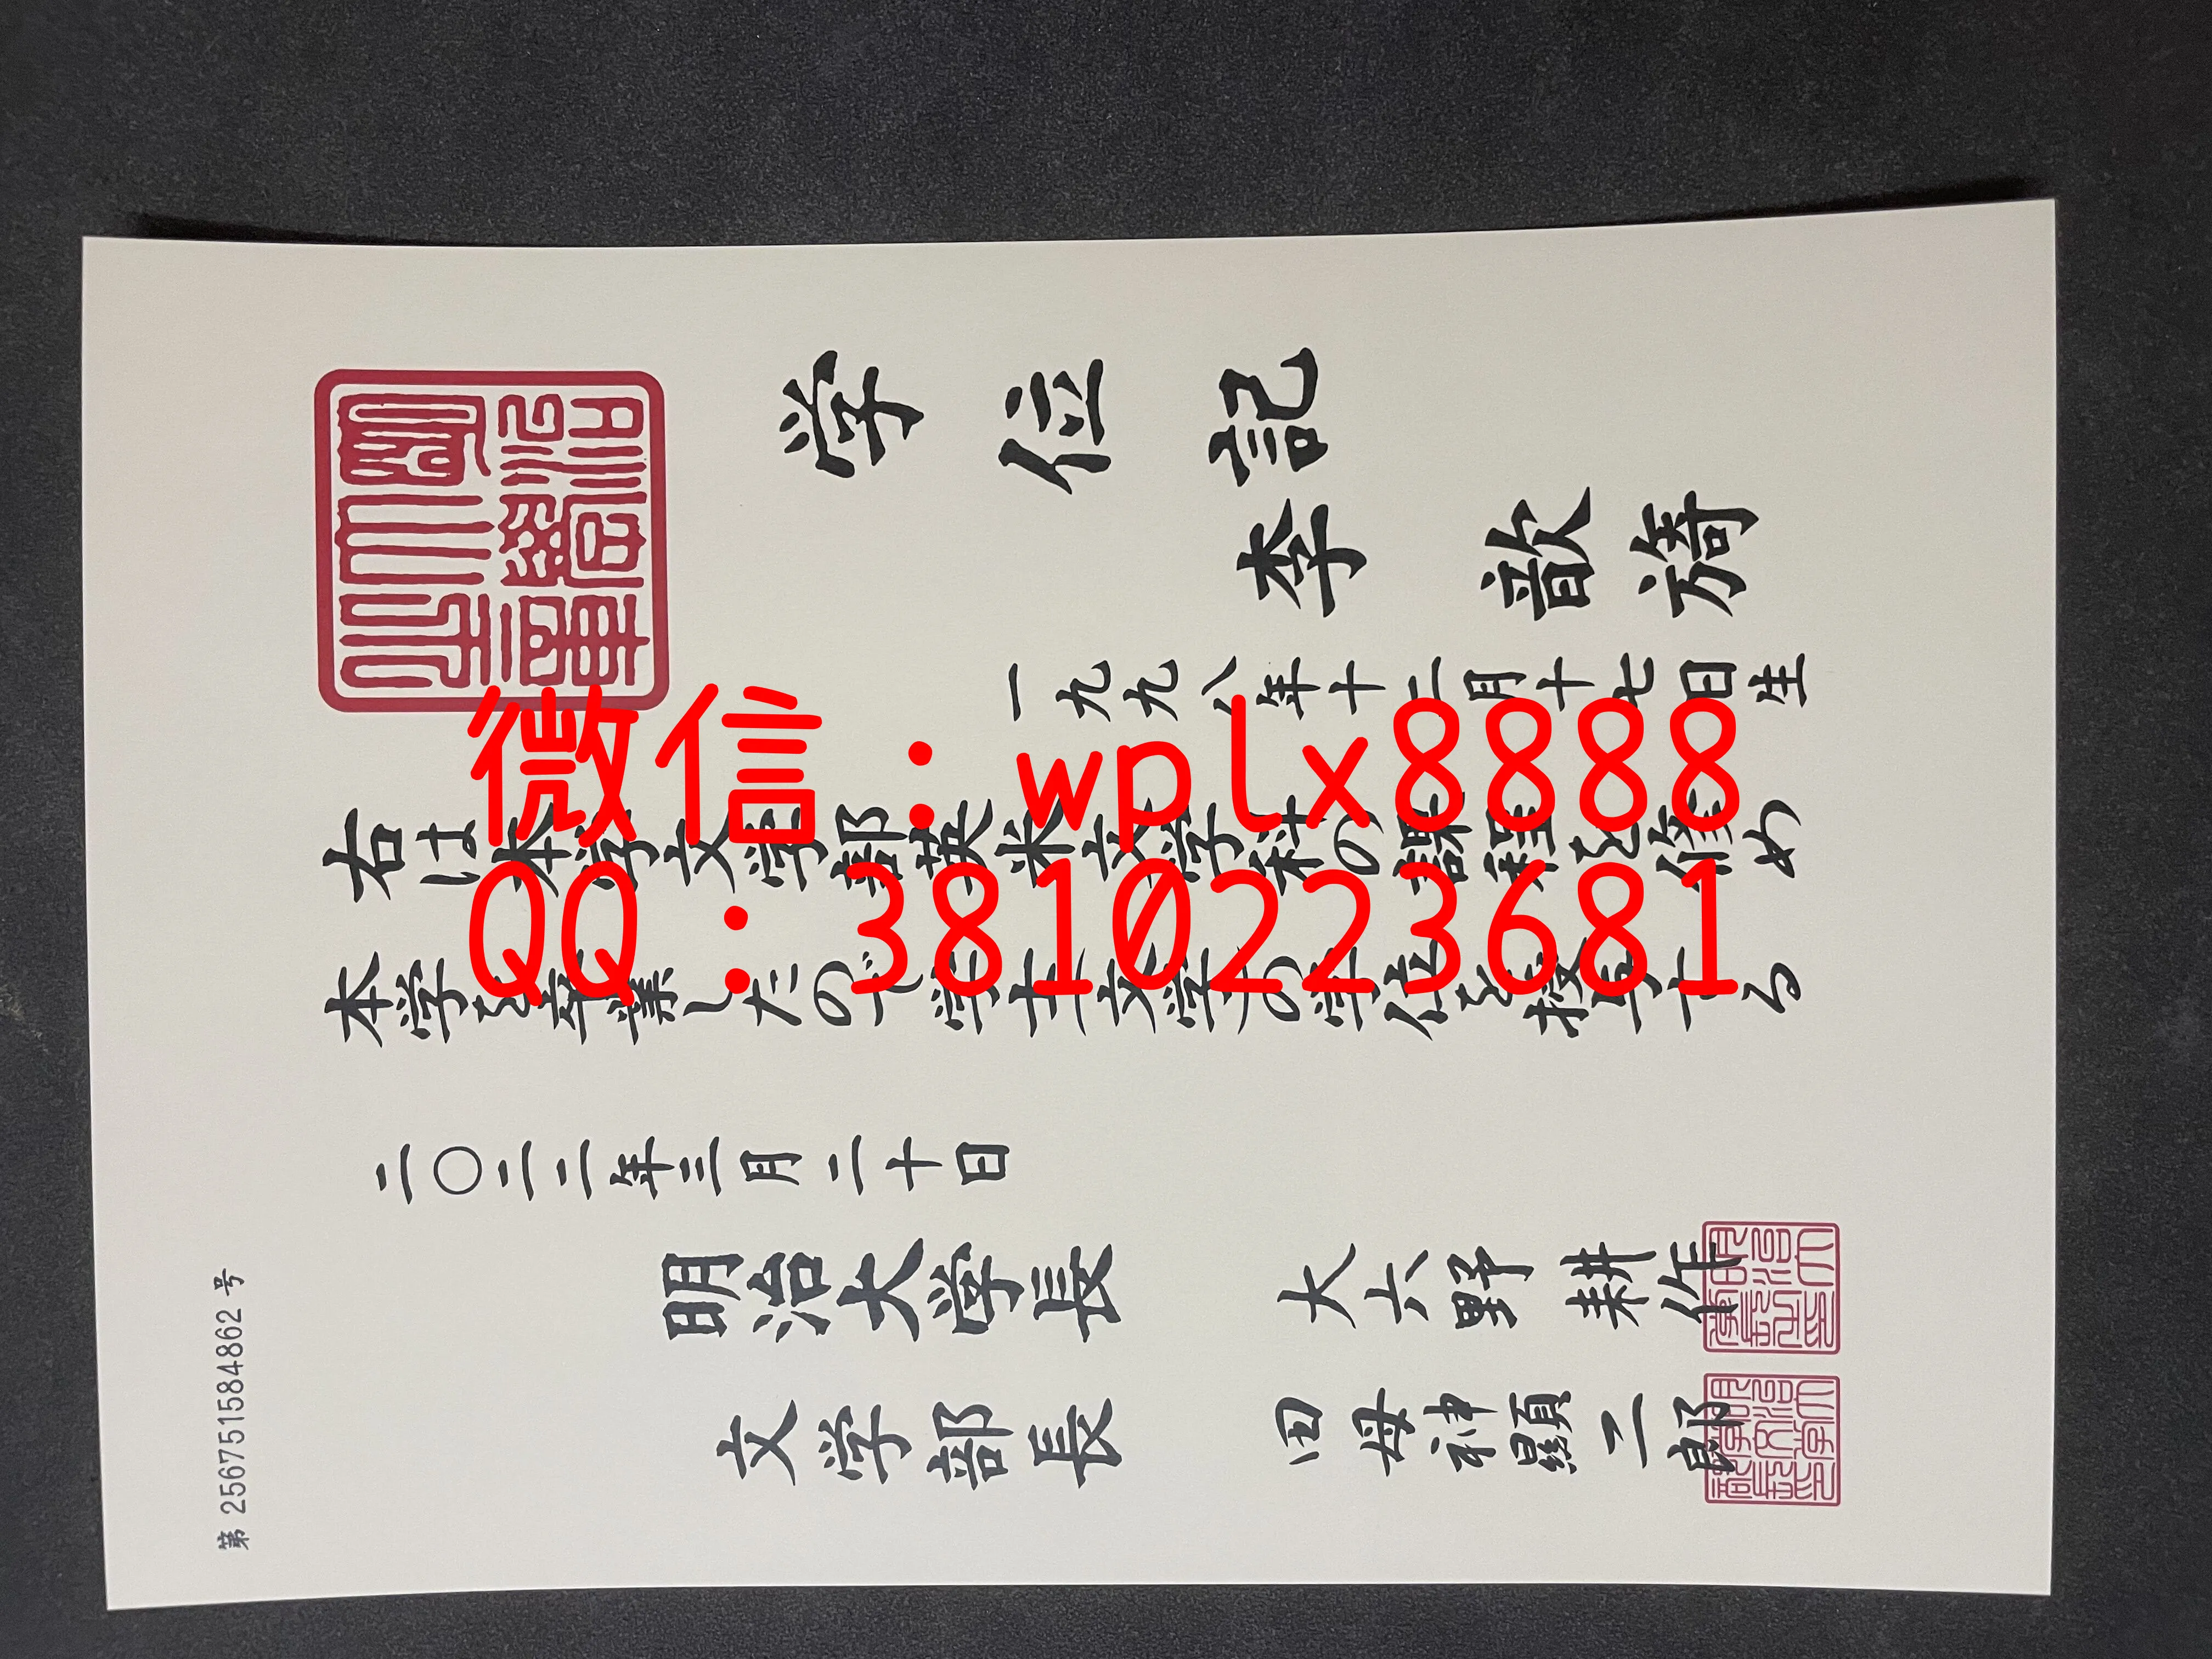 学位記
李 歆旑
一九九八年十二月十七日生
右は本学文学部英米文学科の課程を修め
本学を卒業したので学士(文学)の学位を授与する
二〇二二年三月二十日
明治大学長 大六野 耕作
文学部長 田母神 顯二郎
第 2567515584862 号
微信：wplx8888
QQ：3810223681